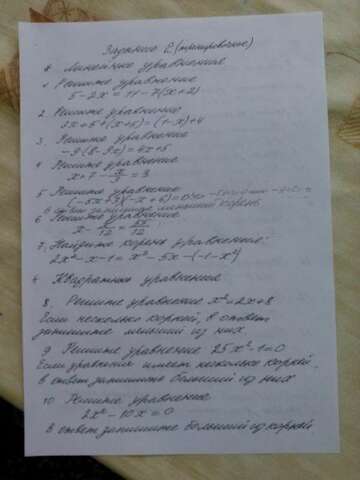 Задание 2 (тренировочное)
* Линейные уравнения
1 Решите уравнение
5-2x = 11-7(x+2)
2. Решите уравнение
3x+5+(x+5)=(1-x)+4
3. Решите уравнение
-9(8-9x)=4x+5
4 Решите уравнение
5 Решите уравнение
(-5x+3)(-x+6)=0
В ответ запишите меньший корень
6 Решите уравнение
7. Найдите корни уравнения:
2x²-x-1 = x²-5x-(-1-x²)
* Квадратные уравнения
8. Решите уравнение x²=2x+8
Если несколько корней, в ответ
запишите меньший из них
9 Решите уравнение 25x²-1=0
Если уравнение имеет несколько корней,
в ответ запишите больший из них
10 Решите уравнение
2x²-10x=0
В ответ запишите больший из корней.